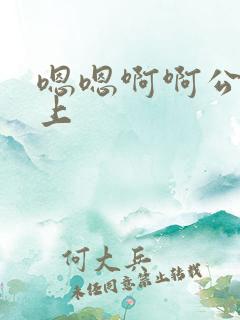 嗯嗯啊啊公
上
何大兵
未经同意禁止转载